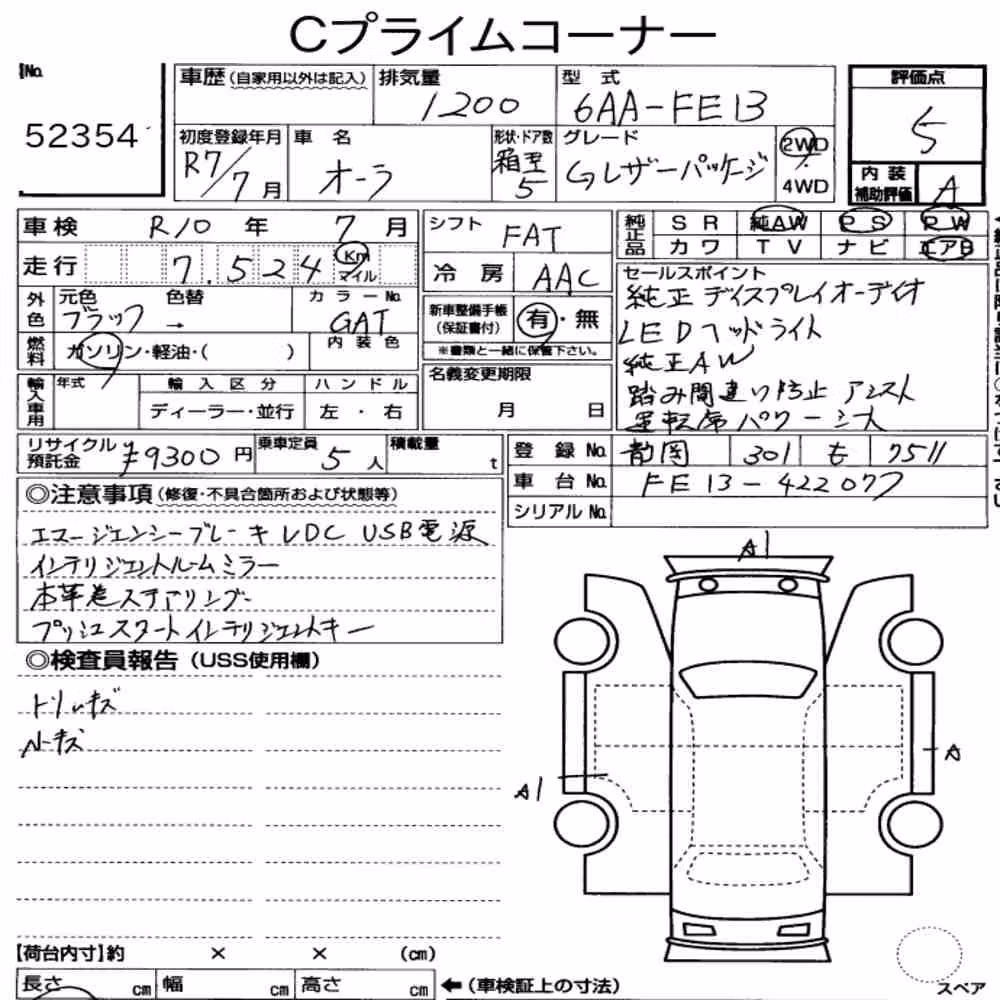 Cプライムコーナー
No.
52354
車歴(自家用以外は記入)
排気量
1200
型式
6AA-FE13
評価点
5
初度登録年月
R7/7月
車名
オーラ
形状・ドア数
箱型
5
グレード
Gレザーパッケージ
2WD
4WD
内装
補助評価
A
車検 R10年 7月
走行 7.524 Km
マイル
シフト
FAT
冷房 AAC
純正品
SR 純AW PS PW
カワ TV ナビ エアB
外色
元色
ブラック
色替
→
カラーNo.
GAT
内装色
燃料
ガソリン・軽油・( )
新車整備手帳
(保証書付)
有・無
※書類と一緒に保管下さい。
セールスポイント
純正ディスプレイオーディオ
LEDヘッドライト
純正AW
踏み間違い防止アシスト
運転席パワーシート
輸入車用
年式
輸入区分
ディーラー・並行
ハンドル
左・右
名義変更期限
月 日
リサイクル
預託金
¥9300円
乗車定員
5人
積載量
t
登録No. 静岡 301 も 7511
車台No. FE13-422077
シリアルNo.
◎注意事項(修復・不具合箇所および状態等)
エマージェンシーブレーキ LDC USB電源
インテリジェントルームミラー
本革巻ステアリング
プッシュスタートインテリジェントキー
◎検査員報告(USS使用欄)
トリムキズ
ハーキズ
A1
A1
A
【荷台内寸】約 × × (cm)
長さ cm 幅 cm 高さ cm ←(車検証上の寸法)
スペア